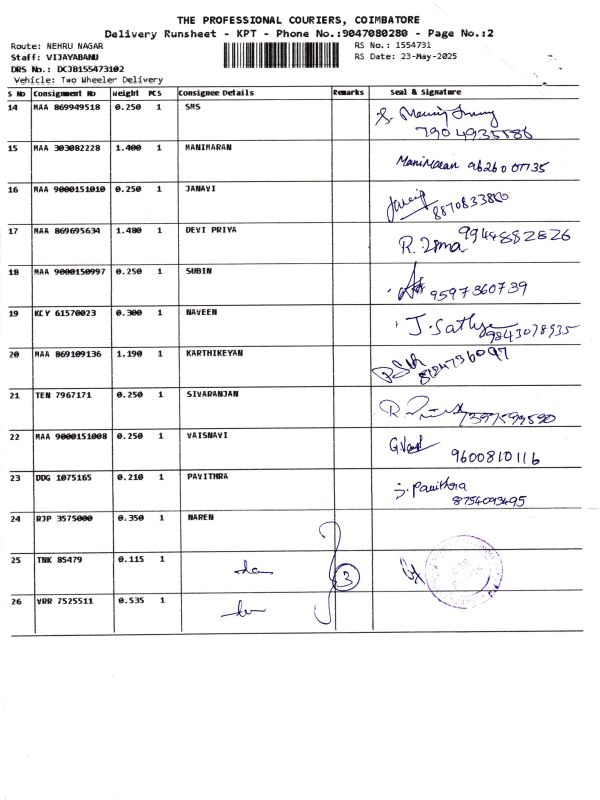 THE PROFESSIONAL COURIERS, COIMBATORE
Delivery Runsheet - KPT - Phone No.:9047080280 - Page No.:2
Route: NEHRU NAGAR RS No.: 1554731
Staff: VIJAYABANU RS Date: 23-May-2025
DRS No.: DCJB155473102
Vehicle: Two Wheeler Delivery
S No Consignment No Weight PCS Consignee Details Remarks Seal & Signature
14 MAA 869949518 0.250 1 SMS
7904935586
15 MAA 303082228 1.400 1 MANIMARAN Manimaran
16 MAA 9000151010 0.250 1 JANAVI
8870833800
17 MAA 869695634 1.480 1 DEVI PRIYA R. Uma 9944882826
18 MAA 9000150997 0.250 1 SUBIN 9597360739
19 KCY 61570023 0.300 1 NAVEEN J. Sathya 9843078935
20 MAA 869109136 1.190 1 KARTHIKEYAN
21 TEN 7967171 0.250 1 SIVARANJAN
22 MAA 9000151008 0.250 1 VAISNAVI
9600810116
23 DDG 1075165 0.210 1 PAVITHRA S. Pavithra
8754093495
24 RJP 3575000 0.350 1 NAREN
25 TNK 85479 0.115 1 3
26 VRR 7525511 0.535 1